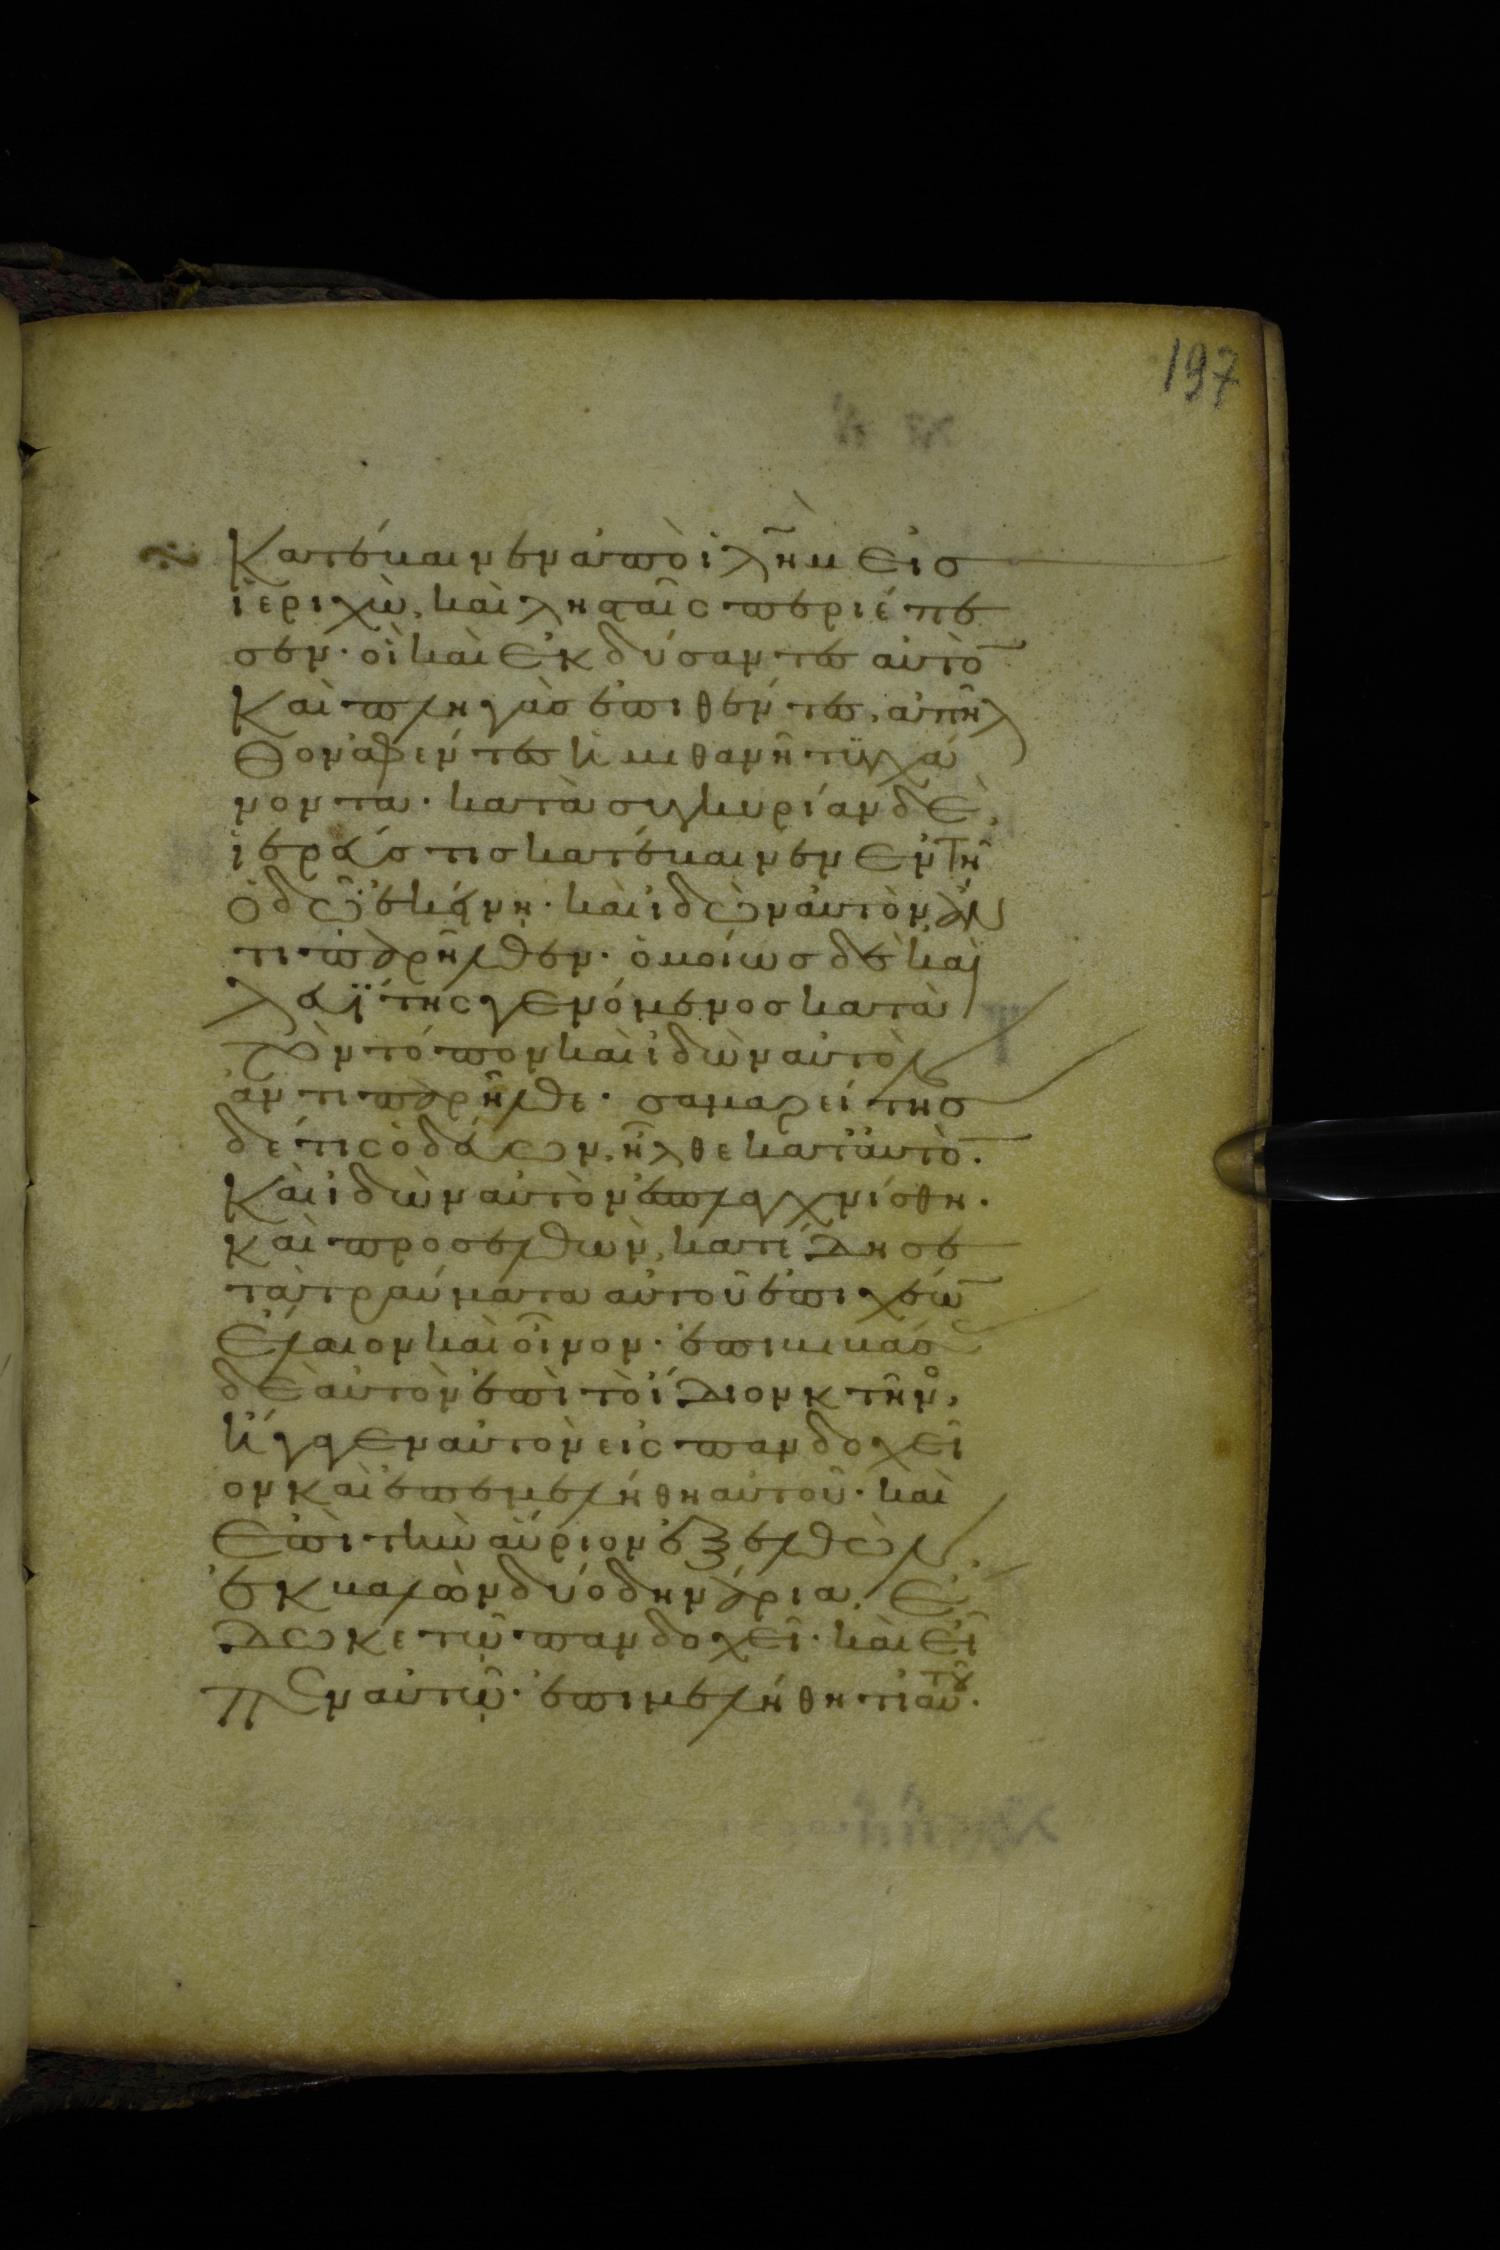 197
Κατέβαινεν ἀπὸ ἰλῆμ εἰσ
ἱεριχὼ, καὶ λησταῖς περιέπε
σεν· οἳ καὶ ἐκδύσαντεσ αὐτὸ̄
Καὶ πληγὰσ ἐπιθέντεσ, ἀπῆλ
θον ἀφέντεσ ἡμιθανῆ τυγχά
νοντα· κατὰ συγκυρίαν δὲ,
ἱερεύσ τισ κατέβαινεν ἐν τῆ
ὁδῶ ἐκείνη· καὶ ἰδὼν αὐτὸν ἀν
τιπαρῆλθεν· ὁμοίωσ δὲ καὶ
λευΐτης γενόμενοσ κατὰ
τὸν τόπον καὶ ἰδὼν αὐτὸν
ἀντιπαρῆλθε· σαμαρείτησ
δέ τις ὁδεύων, ἦλθε κατ' αὐτὸ̄·
Καὶ ἰδὼν αὐτὸν ἐσπλαγχνίσθη·
καὶ προσελθὼν, κατέδησε
τὰ τραύματα αὐτοῦ ἐπιχέω̄
ἔλαιον καὶ οἶνον· ἐπιβιβάσ
δὲ αὐτὸν ἐπὶ τὸ ἴδιον κτῆνο,
ἤγαγεν αὐτον εἰς πανδοχεῖ
ον καὶ ἐπεμελήθη αὐτοῦ· καὶ
ἐπὶ τὴν αὔριον ἐξελθὼν,
ἐκβαλὼν δύο δηνάρια, ἔ
δωκε τῶ πανδοχεῖ· καὶ εἶ
πεν αὐτῷ· ἐπιμελήθητι αὐτοῦ·